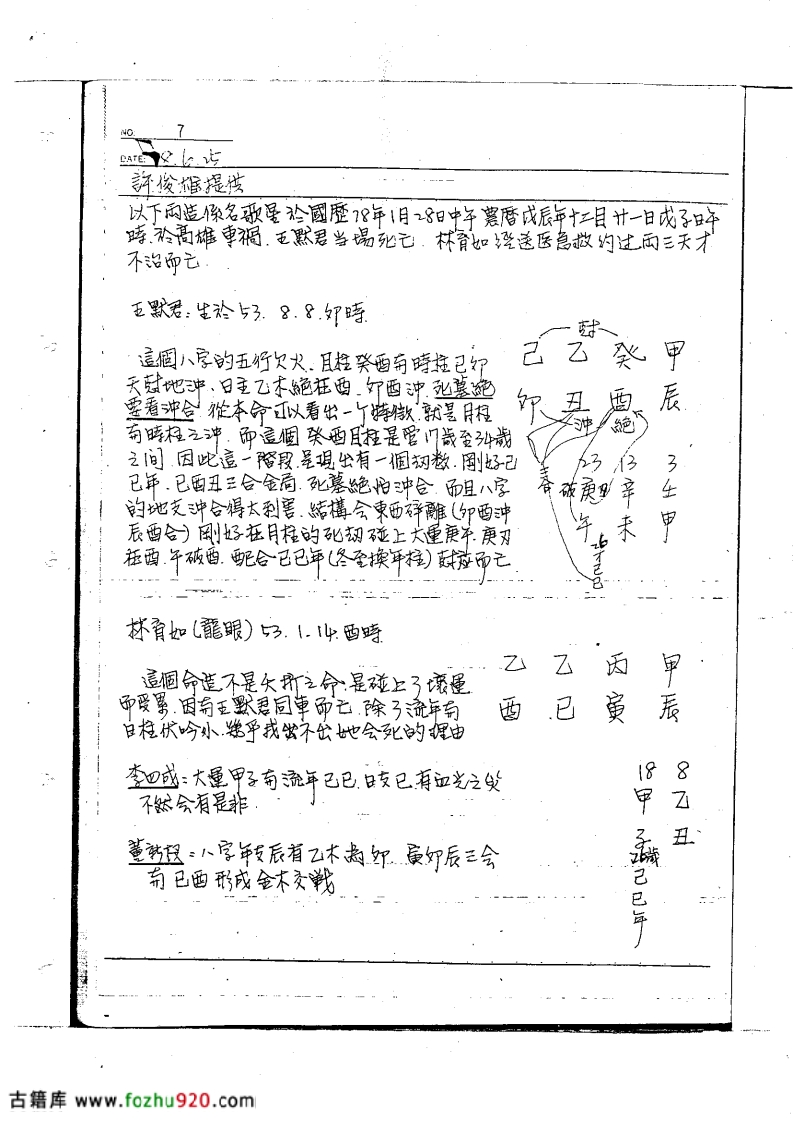 NO. 7
DATE: 78.6.25
許俊雄提供
以下兩造係名歌星於國歷78年1月28日中午農曆戊辰年十二月廿一日戊子日午
時.於高雄車禍.王默君当場死亡.林育如経送医急救約过兩三天才
不治而亡.
王默君:生於53. 8. 8.卯時
這個八字的五行欠火、月柱癸酉有時柱己卯
天尅地沖、日主乙木絕在酉.卯酉沖.死墓絕
要看沖合.從本命可以看出一个特徵.就是月柱
有時柱之沖.而這個癸酉月柱是管17歲至34歲
之间.因此這一階段.呈現出有一個劫数.剛好己
巳年.巳酉丑三合金局.死墓絕怕沖合.而且八字
的地支沖合得太利害.結構会東西碎離(卯酉沖
辰酉合)剛好在月柱的死劫碰上大運庚午.庚刃
在酉.午破酉.配合己巳年(冬至換年柱)尅应而亡
尅
己 乙 癸 甲
卯 丑 酉 辰
沖 絕
23 13 3
破庚 辛 壬
午 未 申
26才己巳
林育如(龍眼)53.1.14.酉時
這個命造不是夭折之命.是碰上了壞運
而受累.因有王默君同車而亡.除了流年有
日柱伏吟小.幾乎找出不出她会死的理由
乙 乙 丙 甲
酉 巳 寅 辰
李四成:大運甲子有流年己巳.日支巳.有血光之災
不然会有是非.
18 8
甲 乙
子 丑
26歲
己
巳
年
董新段:八字年支辰有乙木為卯 寅卯辰三会
有巳酉形成金木交戰
古籍库 www.fozhu920.com